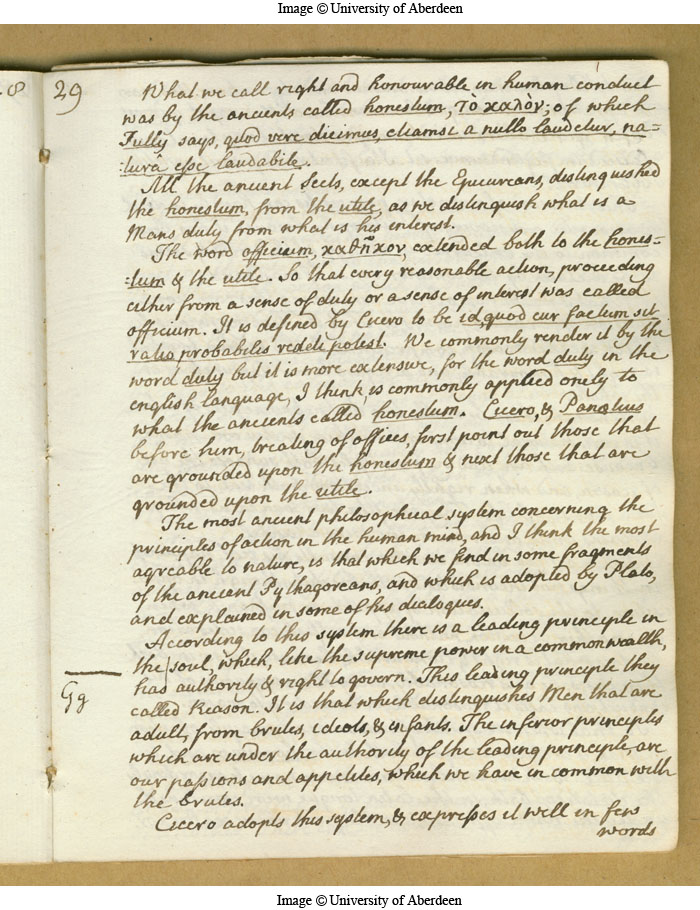 Image © University of Aberdeen
8
29
What we call right and honourable in human conduct
was by the ancients called honestum, τὸ καλὸν; of which
Tully says, quod vere dicimus, etiamsi a nullo laudetur, na=
=turâ esse laudabile.
All the ancient Sects, except the Epicureans, distinguished
the honestum, from the utile, as we distinguish what is a
Mans duty from what is his interest.
The word officium, καθῆκον, extended both to the hones=
=tum & the utile. So that every reasonable action, proceeding
either from a sense of duty or a sense of interest was called
officium. It is defined by Cicero to be id, quod cur factum sit
ratio probabilis reddi potest. We commonly render it by the
word duty but it is more extensive, for the word duty in the
english language, I think is commonly applied onely to
what the ancients called honestum. Cicero, & Panætius
before him, treating of offices, first point out those that
are grounded upon the honestum & next those that are
grounded upon the utile.
The most ancient philosophical system concerning the
principles of action in the human mind, and I think the most
agreable to nature, is that which we find in some fragments
of the ancient Pythagoreans, and which is adopted by Plato,
and explained in some of his dialogues.
According to this system there is a leading principle in
the soul, which, like the supreme power in a common wealth,
has authority & right to govern. This leading principle they
called Reason. It is that which distinguishes Men that are
Gg
adult, from brutes, ideots, & infants. The inferior principles
which are under the authority of the leading principle, are
our passions and appetites, which we have in common with
the brutes.
Cicero adopts this system, & expresses it well in few
words
Image © University of Aberdeen